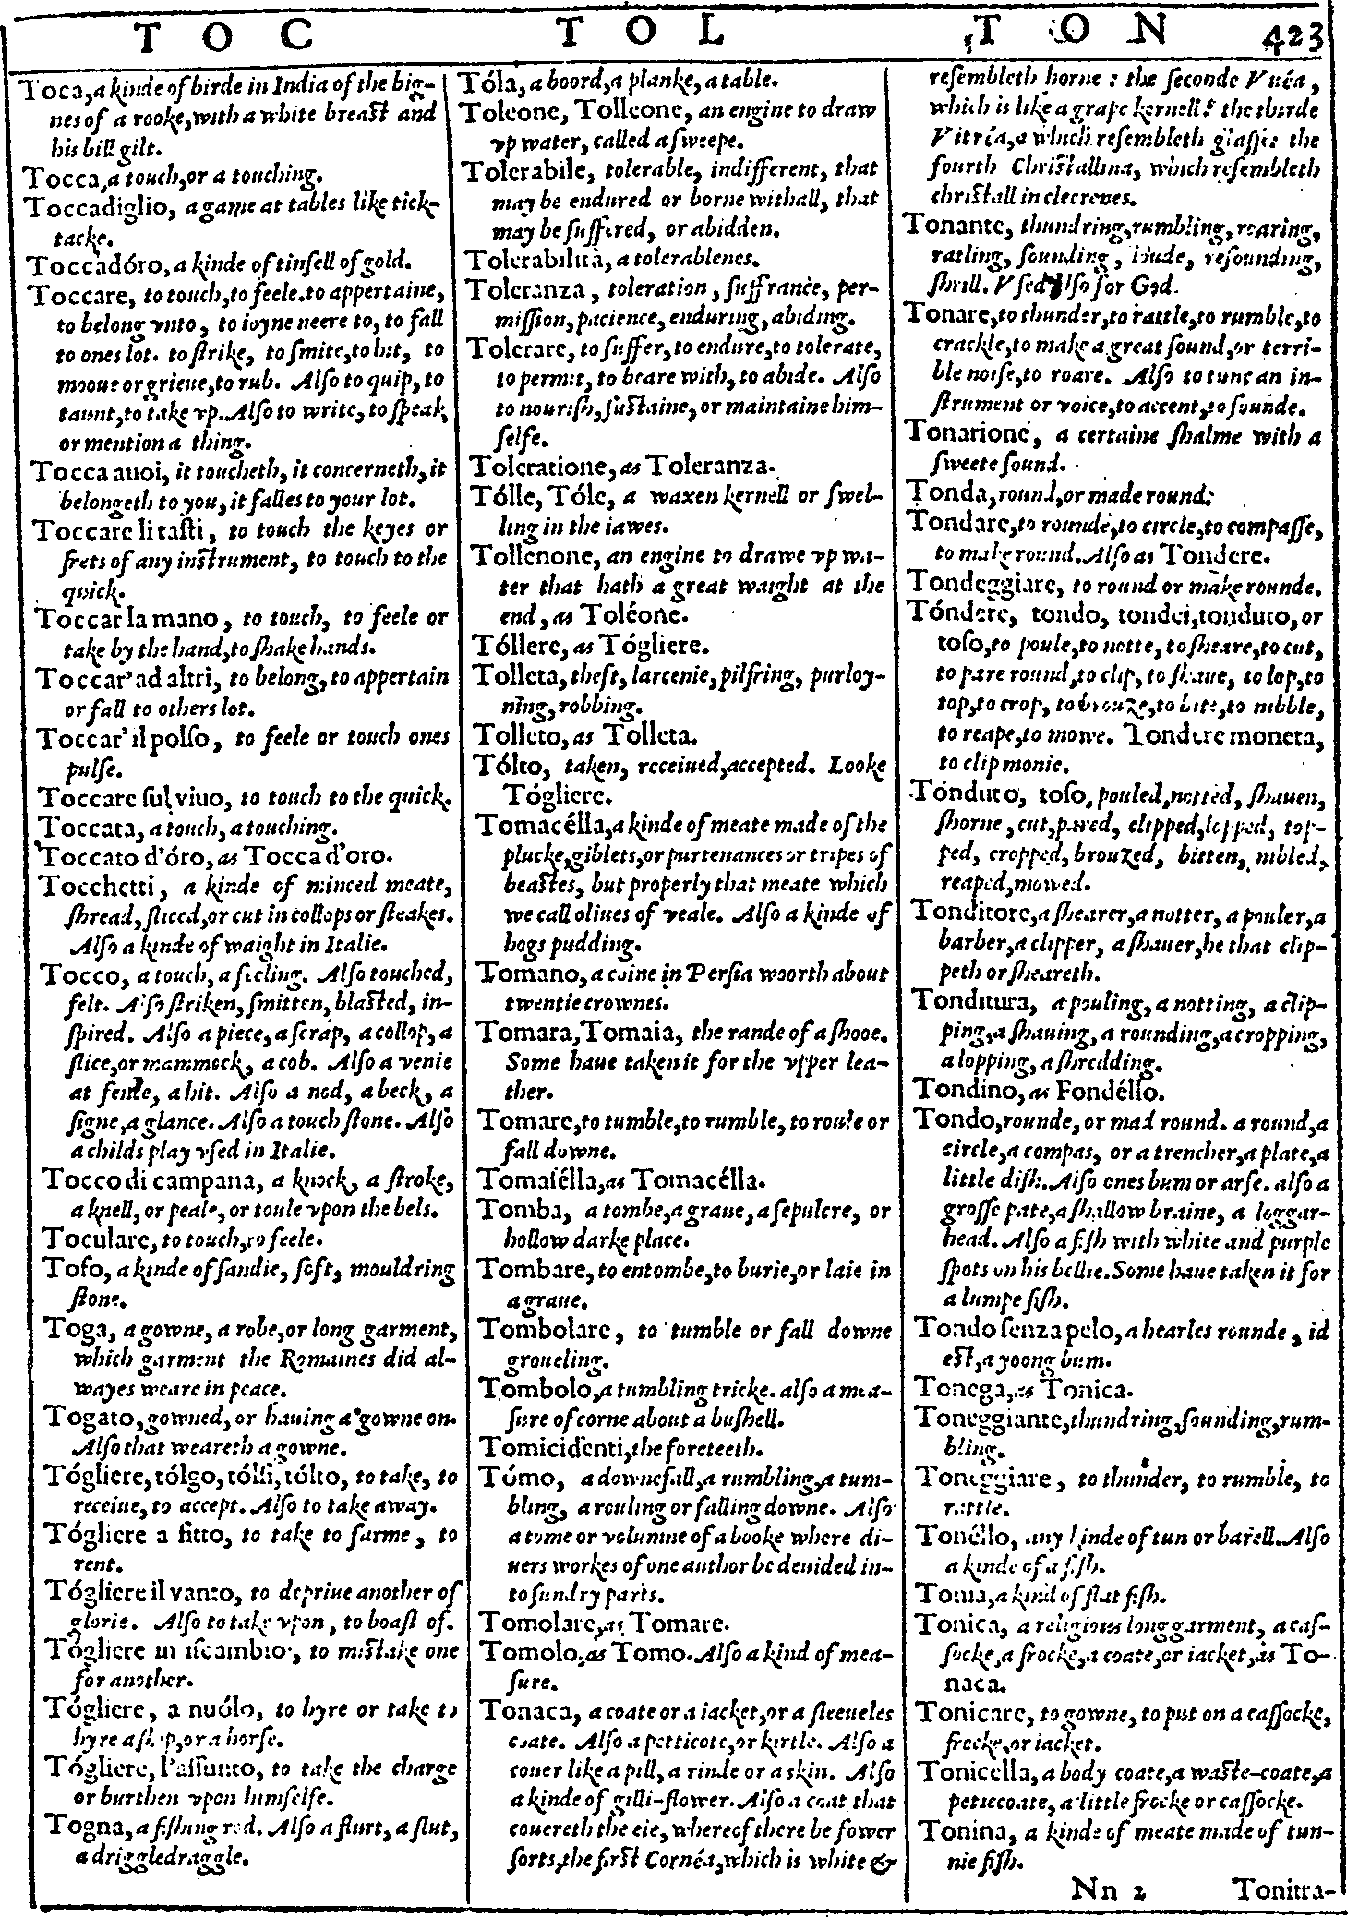 TOC TOL TON 423
Toca, a kinde of birde in India of the big-
nes of a rooke, with a white breast and
his bill gilt.
Tocca, a touch, or a touching.
Toccadiglio, a game at tables like tick-
tacke.
Toccadóro, a kinde of tinsell of gold.
Toccare, to touch, to feele. to appertaine,
to belong vnto, to ioyne neere to, to fall
to ones lot. to strike, to smite, to hit, to
mooue or grieue, to rub. Also to quip, to
taunt, to take vp. Also to write, to speak,
or mention a thing.
Tocca a uoi, it toucheth, it concerneth, it
belongeth to you, it falles to your lot.
Toccare li tasti, to touch the keyes or
frets of any instrument, to touch to the
quick.
Toccar la mano, to touch, to feele or
take by the hand, to shake hands.
Toccar' ad altri, to belong, to appertain
or fall to others lot.
Toccar' il polso, to feele or touch ones
pulse.
Toccare sul viuo, to touch to the quick.
Toccata, a touch, a touching.
Toccato d'óro, as Tocca d'oro.
Tocchetti, a kinde of minced meate,
shread, sliced, or cut in collops or steakes.
Also a kinde of waight in Italie.
Tocco, a touch, a feeling. Also touched,
felt. Also striken, smitten, blasted, in-
spired. Also a piece, a scrap, a collop, a
slice, or mammock, a cob. Also a venie
at fence, a hit. Also a nod, a beck, a
signe, a glance. Also a touch stone. Also
a childs play vsed in Italie.
Tocco di campana, a knock, a stroke,
a knell, or peale, or toule vpon the bels.
Toculare, to touch, to feele.
Tofo, a kinde of sandie, soft, mouldring
stone.
Toga, a gowne, a robe, or long garment,
which garment the Romaines did al-
wayes weare in peace.
Togato, gowned, or hauing a gowne on.
Also that weareth a gowne.
Tógliere, tólgo, tólsi, tólto, to take, to
receiue, to accept. Also to take away.
Tógliere a fitto, to take to farme, to
rent.
Tógliere il vanto, to depriue another of
glorie. Also to take vpon, to boast of.
Tógliere in iscambio, to mistake one
for another.
Tógliere, a nuólo, to hyre or take to
hyre a ship, or a horse.
Tógliere, l'assunto, to take the charge
or burthen vpon himselfe.
Togna, a fishing rod. Also a flurt, a slut,
a driggledraggle.
Tóla, a boord, a planke, a table.
Toleone, Tolleone, an engine to draw
vp water, called a sweepe.
Tolerabile, tolerable, indifferent, that
may be endured or borne withall, that
may be suffired, or abidden.
Tolerabilità, a tolerablenes.
Toleranza, toleration, suffrance, per-
mission, pacience, enduring, abiding.
Tolerare, to suffer, to endure, to tolerate,
to permit, to beare with, to abide. Also
to nourish, sustaine, or maintaine him-
selfe.
Toleratione, as Toleranza.
Tólle, Tóle, a waxen kernell or swel-
ling in the iawes.
Tollenone, an engine to drawe vp wa-
ter that hath a great waight at the
end, as Toléone.
Tóllere, as Tógliere.
Tolleta, theft, larcenie, pilfring, purloy-
ning, robbing.
Tolleto, as Tolleta.
Tólto, taken, receiued, accepted. Looke
Tógliere.
Tomacélla, a kinde of meate made of the
plucke, giblets, or purtenances or tripes of
beastes, but properly that meate which
we call oliues of veale. Also a kinde of
hogs pudding.
Tomano, a coine in Persia woorth about
twentie crownes.
Tomara, Tomaia, the rande of a shooe.
Some haue taken it for the vpper lea-
ther.
Tomare, to tumble, to rumble, to roule or
fall downe.
Tomasélla, as Tomacélla.
Tomba, a tombe, a graue, a sepulcre, or
hollow darke place.
Tombare, to entombe, to burie, or laie in
a graue.
Tombolare, to tumble or fall downe
groueling.
Tombolo, a tumbling tricke. also a mea-
sure of corne about a bushell.
Tomicidenti, the foreteeth.
Tómo, a downefall, a rumbling, a tum-
bling, a rouling or falling downe. Also
a tome or volumne of a booke where di-
uers workes of one author be deuided in-
to sundry parts.
Tomolare, as Tomare.
Tomolo, as Tomo. Also a kind of mea-
sure.
Tonaca, a coate or a iacket, or a sleeueles
coate. Also a petticote, or kirtle. Also a
couer like a pill, a rinde or a skin. Also
a kinde of gilli-flower. Also a coat that
couereth the eie, whereof there be fower
sorts, the first Cornéa, which is white &
resembleth horne: the seconde Vuéa,
which is like a grape kernell: the thirde
Vitréa, a which resembleth glasse: the
fourth Christallina, which resembleth
christall in clecrenes.
Tonante, thundring, rumbling, roaring,
ratling, sounding, loude, resounding,
shrill. Vsed also for God.
Tonare, to thunder, to rattle, to rumble, to
crackle, to make a great sound, or terri-
ble noise, to roare. Also to tune an in-
strument or voice, to accent, to sounde.
Tonarione, a certaine shalme with a
sweete sound.
Tonda, round, or made round.
Tondare, to rounde, to circle, to compasse,
to make round. Also as Tondere.
Tondeggiare, to round or make rounde.
Tóndere, tondo, tondei, tonduto, or
toso, to poule, to notte, to sheare, to cut,
to pare round, to clip, to shaue, to lop, to
top, to crop, to brouze, to bite, to nibble,
to reape, to mowe. Tondere moneta,
to clip monie.
Tónduto, toso, pouled, notted, shauen,
shorne, cut, pared, clipped, lopped, top-
ped, cropped, brouzed, bitten, nibled,
reaped, mowed.
Tonditore, a shearer, a notter, a pouler, a
barber, a clipper, a shauer, he that clip-
peth or sheareth.
Tonditura, a pouling, a notting, a clip-
ping, a shauing, a rounding, a cropping,
a lopping, a shredding.
Tondino, as Fondéllo.
Tondo, rounde, or mad round. a round, a
circle, a compas, or a trencher, a plate, a
little dish. Also ones bum or arse. also a
grosse pate, a shallow braine, a loggar-
head. Also a fish with white and purple
spots on his bellie. Some haue taken it for
a lumpe fish.
Tondo senza pelo, a hearles rounde, id
est, a yoong bum.
Tonega, as Tonica.
Toneggiante, thundring, sounding, rum-
bling.
Toneggiare, to thunder, to rumble, to
rattle.
Tonéllo, any kinde of tun or barell. Also
a kinde of a fish.
Tonia, a kind of flat fish.
Tonica, a religious long garment, a cas-
socke, a frocke, a coate, or iacket, as To-
naca.
Tonicare, to gowne, to put on a cassocke,
frocke, or iacket.
Tonicella, a body coate, a waste-coate, a
petiecoate, a little frocke or cassocke.
Tonina, a kinde of meate made of tun-
nie fish.
Nn 2 Tonitra-